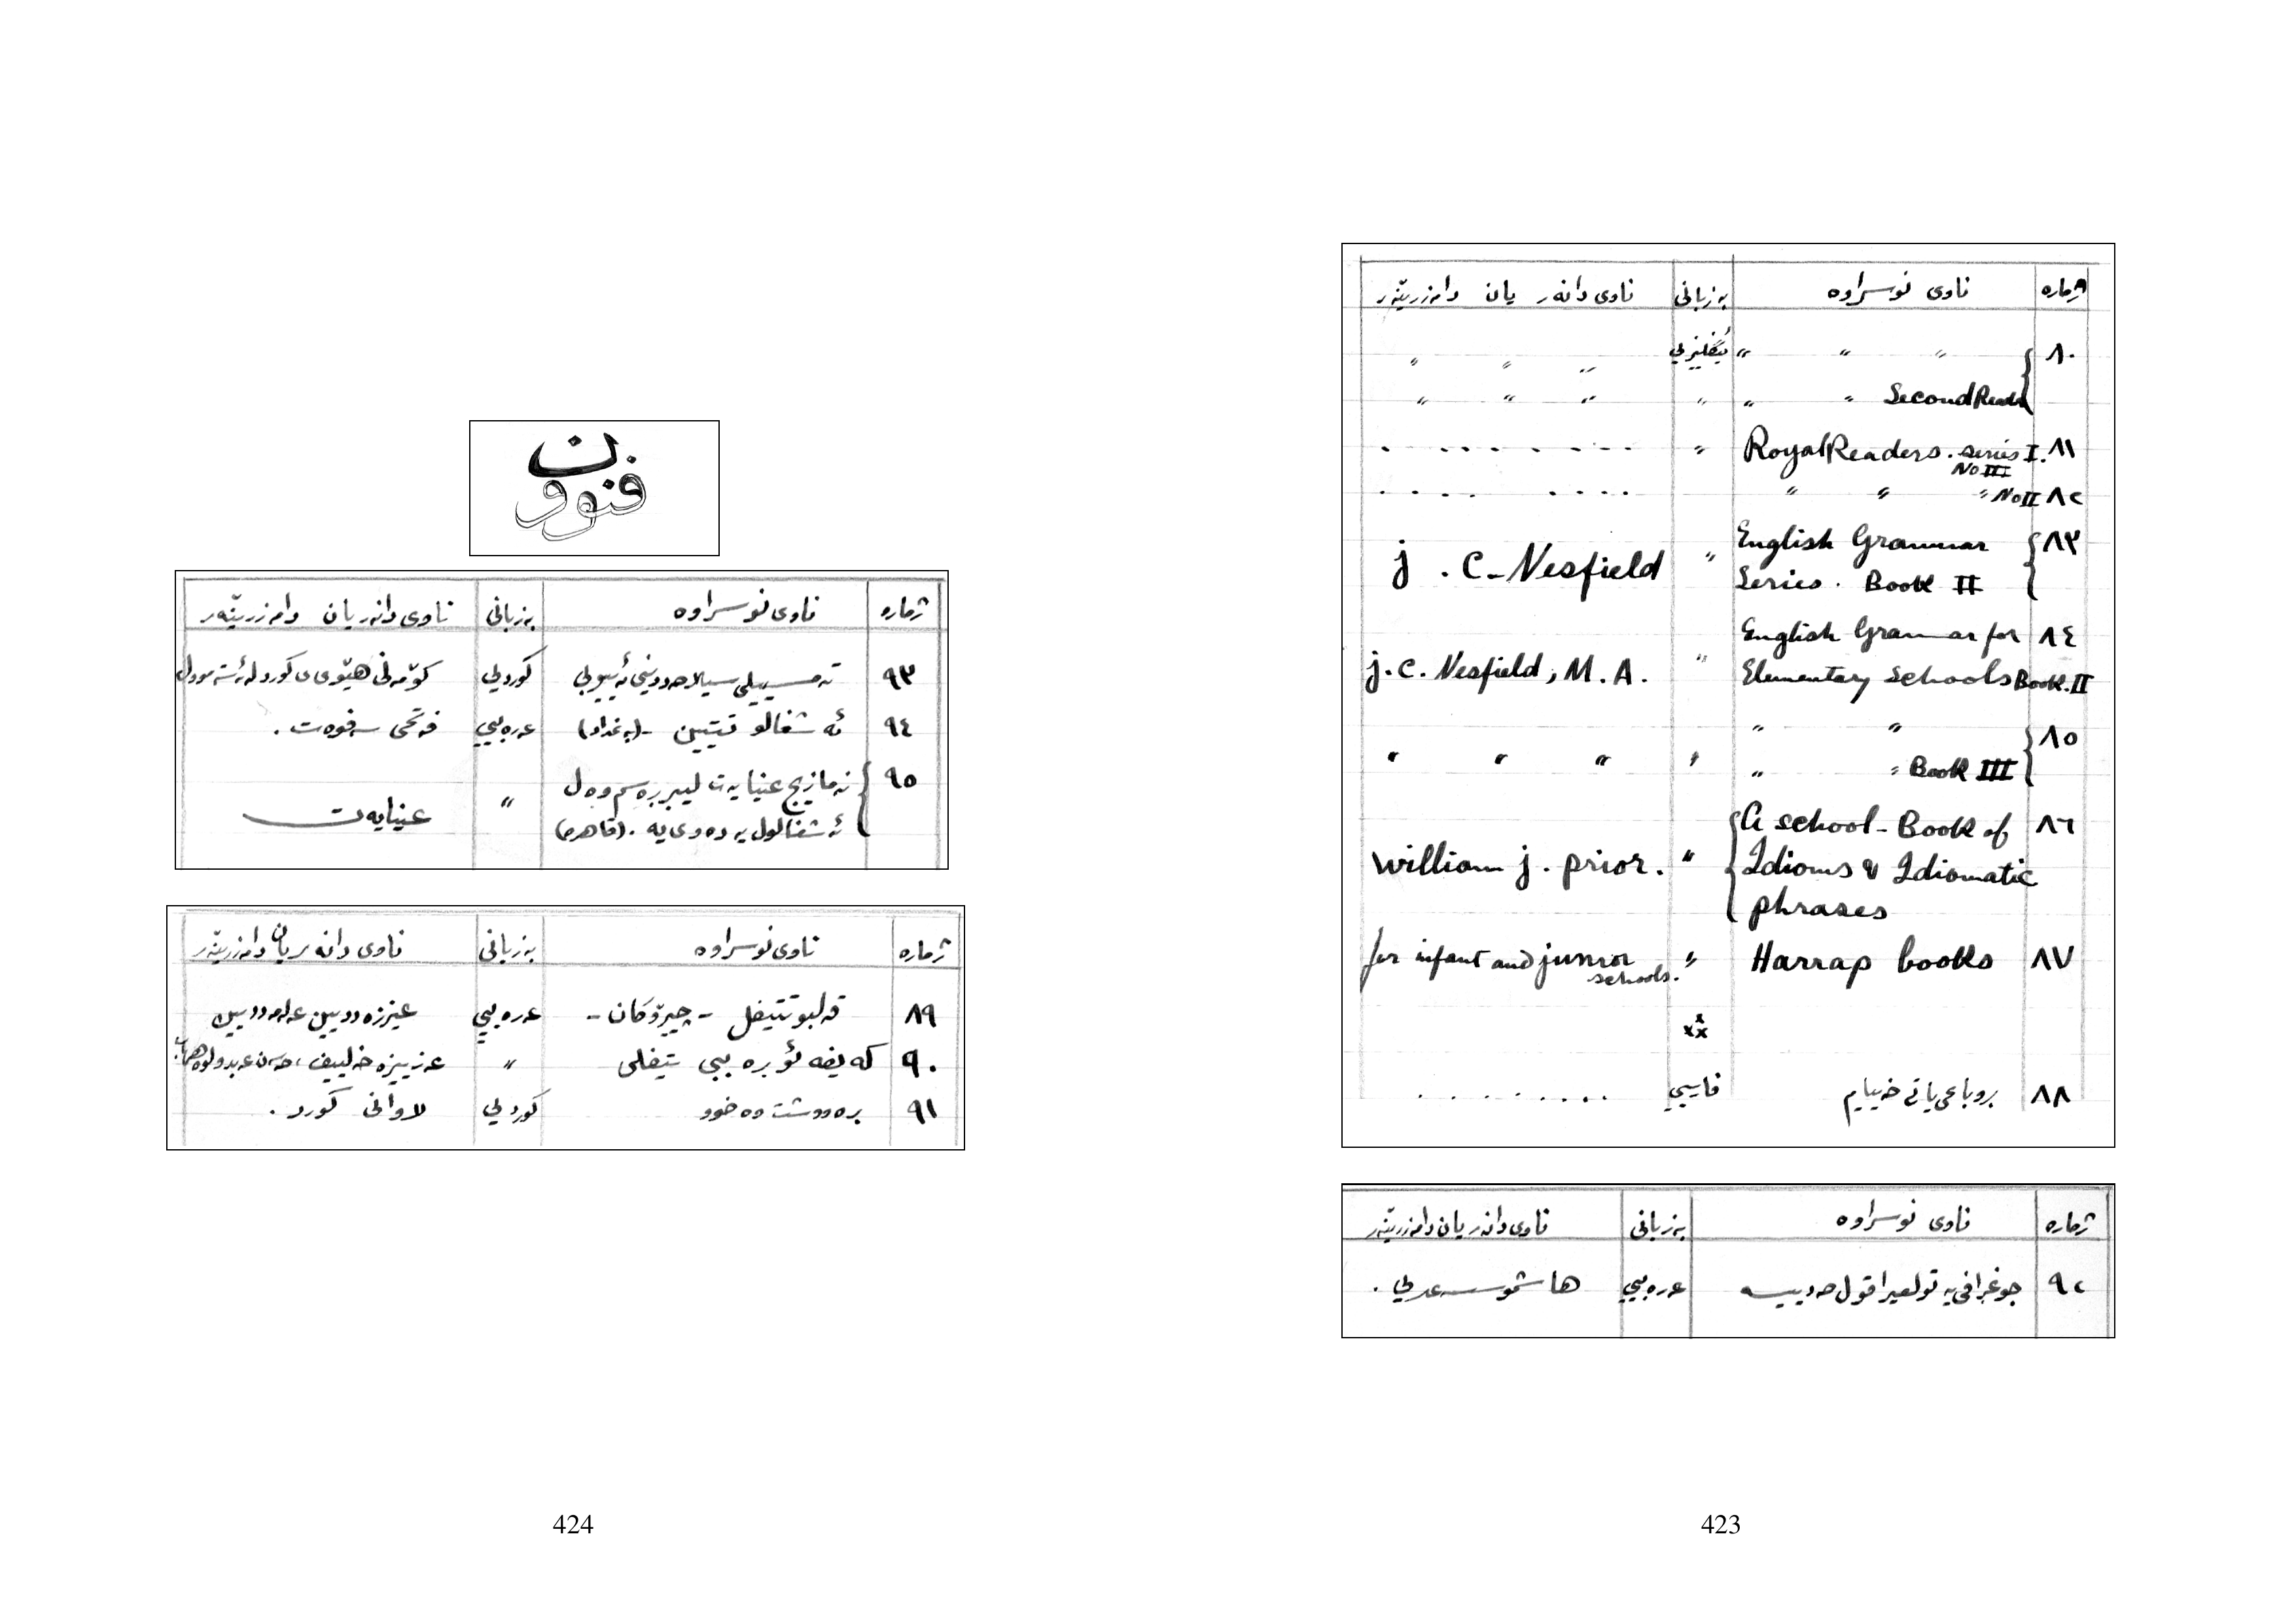 ژماره ناوی نوسراوه بەزبانی ناوی دانەر یان دامەزرێنەر
٨٠ " " " ئینگلیزی " " "
Second Reader " " " " " "
٨١ Royal Readers. series I. " . . . . . . . . .
No III
٨٢ " " " No II . . . . . . . .
٨٣ English Grammar
Series. Book II " j. C. Nesfield
٨٤ English Grammar for
Elementary Schools Book. II " j. C. Nesfield, M. A.
٨٥ " "
" " Book III " " " "
٨٦ A school-Book of
Idioms & Idiomatic " William j. prior.
phrases
٨٧ Harrap books " for infant and junior
schools.
xxx
٨٨ روباعی یاتی خەییام فارسی . . . . . . . . .
ژماره ناوی نوسراوه بەزبانی ناوی دانەر یان دامەزرێنەر
٩٢ عەرەبیی هاشم سەعدی .
423
فنوون
ژماره ناوی نوسراوه بەزبانی ناوی دانەر یان دامەزرێنەر
٩٣ تەمسیلی سیلاحەددینی ئەییوبی کوردیی کۆمەڵی هێوی ی کورد لە ئەستەموول
٩٤ ئەشغالو تتیین -(بەغداد) عەرەبیی فەتحی سەفوەت .
٩٥ نەمازیج عنیایەت لیررەسم وەل
ئەشغالول یەدەوی یە . (قاهرە) " عینایەت
ژماره ناوی نوسراوه بەزبانی ناوی دانەر یان دامەزرێنەر
٨٩ قەلبوتتیفل - چیرۆکان - عەرەبیی عیززەددیین عەلەمەددیین
٩٠ کەیفە ئورەببی تیفلی "
٩١ رەووشت وەخوو کوردیی لاوانی کورد .
424